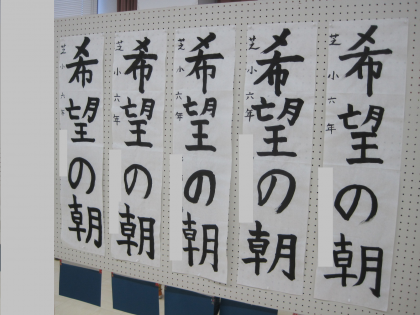 希望の朝
芝小六年
希望の朝
芝小六年
希望の朝
芝小六年
希望の朝
芝小六年
希望の朝
芝小六年